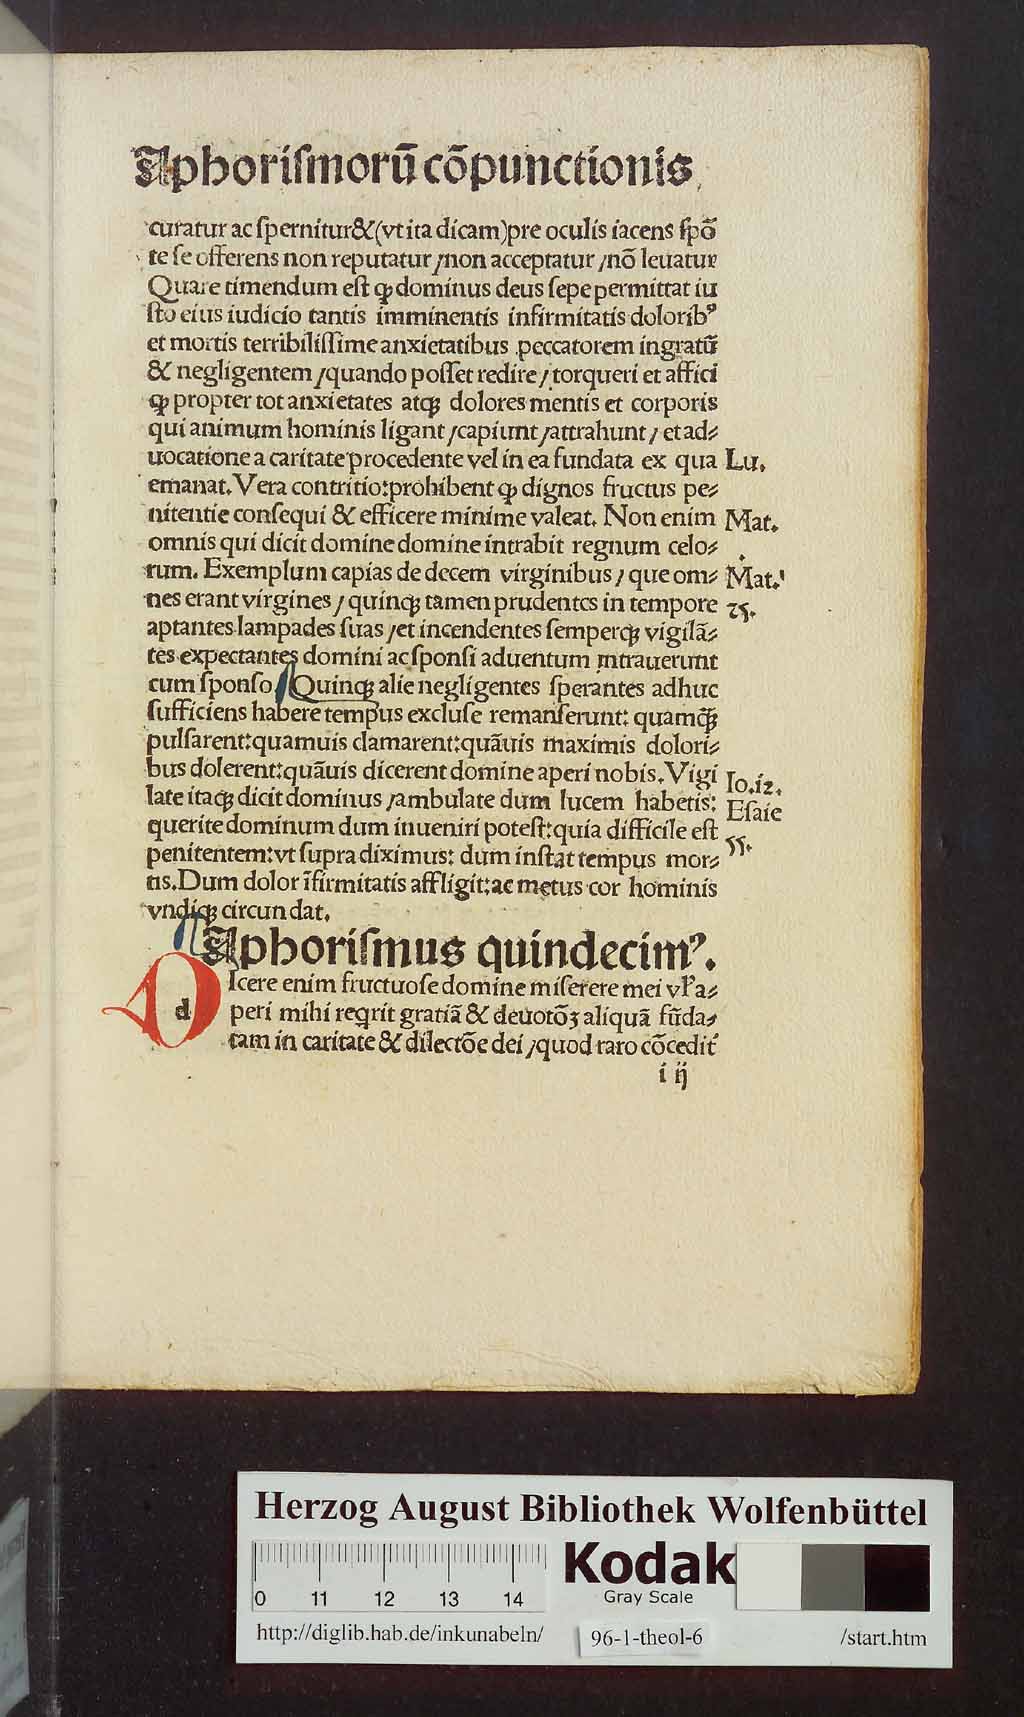 Aphoriſmorū cōpunctionis
curatur ac ſpernitur&(vt ita dicam)pre oculis iacens ſpō
te ſe offerens non reputatur /non acceptatur /nō leuatur
Quare timendum eſt ꝙ dominus deus ſepe permittat iu
ſto eius iudicio tantis imminentis infirmitatis doloribꝰ
et mortis terribiliſſime anxietatibus peccatorem ingratū
& negligentem /quando poſſet redire / torqueri et affici
ꝙ propter tot anxietates atqꝫ dolores mentis et corporis
qui animum hominis ligant /capiunt /attrahunt / et ad⸗
uocatione a caritate procedente vel in ea fundata ex qua Lu.
emanat. Vera contritio:prohibent ꝙ dignos fructus pe⸗
nitentie conſequi & efficere minime valeat. Non enim Mat.
omnis qui dicit domine domine intrabit regnum celo⸗
rum. Exemplum capias de decem virginibus / que om⸗ Mat.
nes erant virgines / quinqꝫ tamen prudentes in tempore 25.
aptantes lampades ſuas /et incendentes ſemperqꝫ vigilā⸗
tes expectantes domini ac ſponſi aduentum intrauerunt
cum ſponſo Quinqꝫ alie negligentes ſperantes adhuc
ſufficiens habere tempus excluſe remanſerunt: quamqꝫ̄
pulſarent:quamuis clamarent:quāuis maximis dolori⸗
bus dolerent:quāuis dicerent domine aperi nobis. Vigi Io.12.
late itaqꝫ dicit dominus /ambulate dum lucem habetis: Eſaie
querite dominum dum inueniri poteſt:quia difficile eſt
penitentem:vt ſupra diximus: dum inſtat tempus mor⸗ 55.
tis. Dum dolor īfirmitatis affligit:ac metus cor hominis
vndiqꝫ circun dat.
Aphoriſmus quindecimꝰ.
D d Icere enim fructuoſe domine miſerere mei vl' a⸗
peri mihi reqrit gratiā & deuotōꝫ aliquā fūda⸗
tam in caritate & dilectōe dei /quod raro cōcedit'
i ij
Herzog August Bibliothek Wolfenbüttel
0 11 12 13 14
Kodak
Gray Scale
http://diglib.hab.de/inkunabeln/ 96-1-theol-6 /start.htm